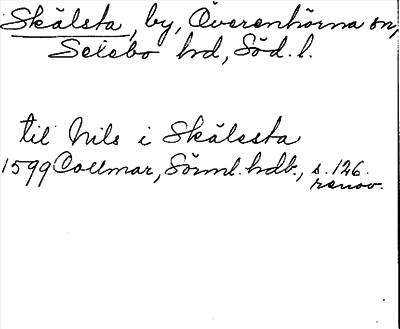 Skälsta, by, Överenhörna sn,
Selebo hd, Söd. l.
til Nils i Skälesta
1599 Collmar, Sörml. hdb., s. 126.
renov.